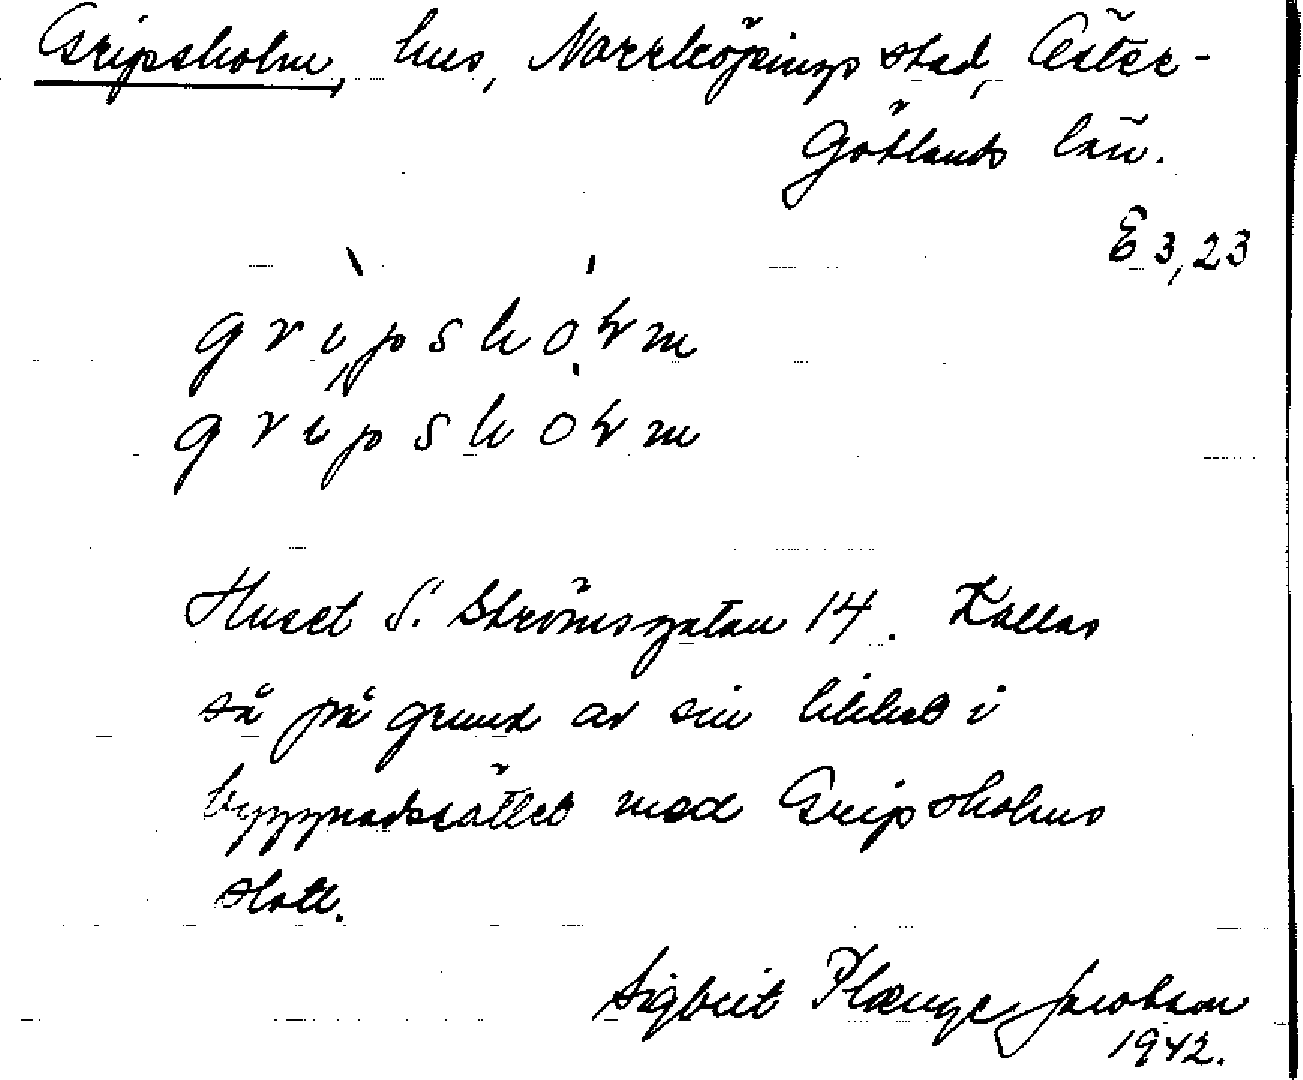 Gripsholm, hus, Norrköpings stad, Öster-
Götlands län.
E 3,23
gripshoɫm
gripshoɫm
Huset S. Strömsgatan 14. Kallas
så på grund av sin likhet i
byggnadssättet med Gripsholms
slott.
Sigbrit Plænge Jacobson
1942.